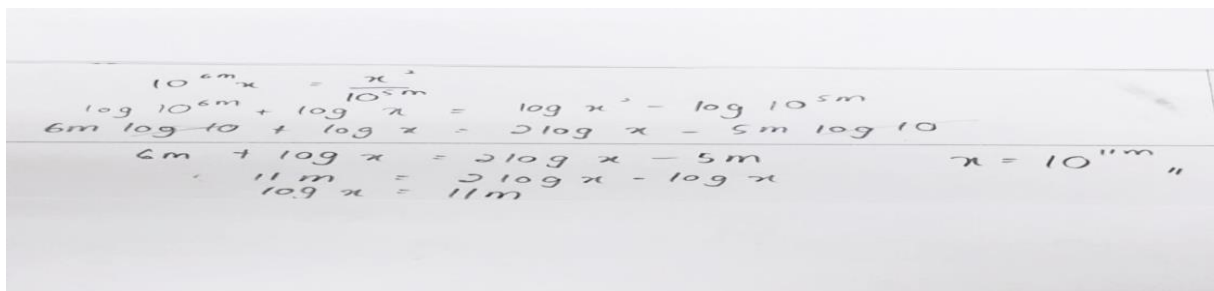 10^{6m}x = x²/10^{5m}
log 10^{6m} + log x = log x² - log 10^{5m}
6m log 10 + log x = 2 log x - 5m log 10
6m + log x = 2 log x - 5m
11m = 2 log x - log x
log x = 11m
x = 10^{11m} "